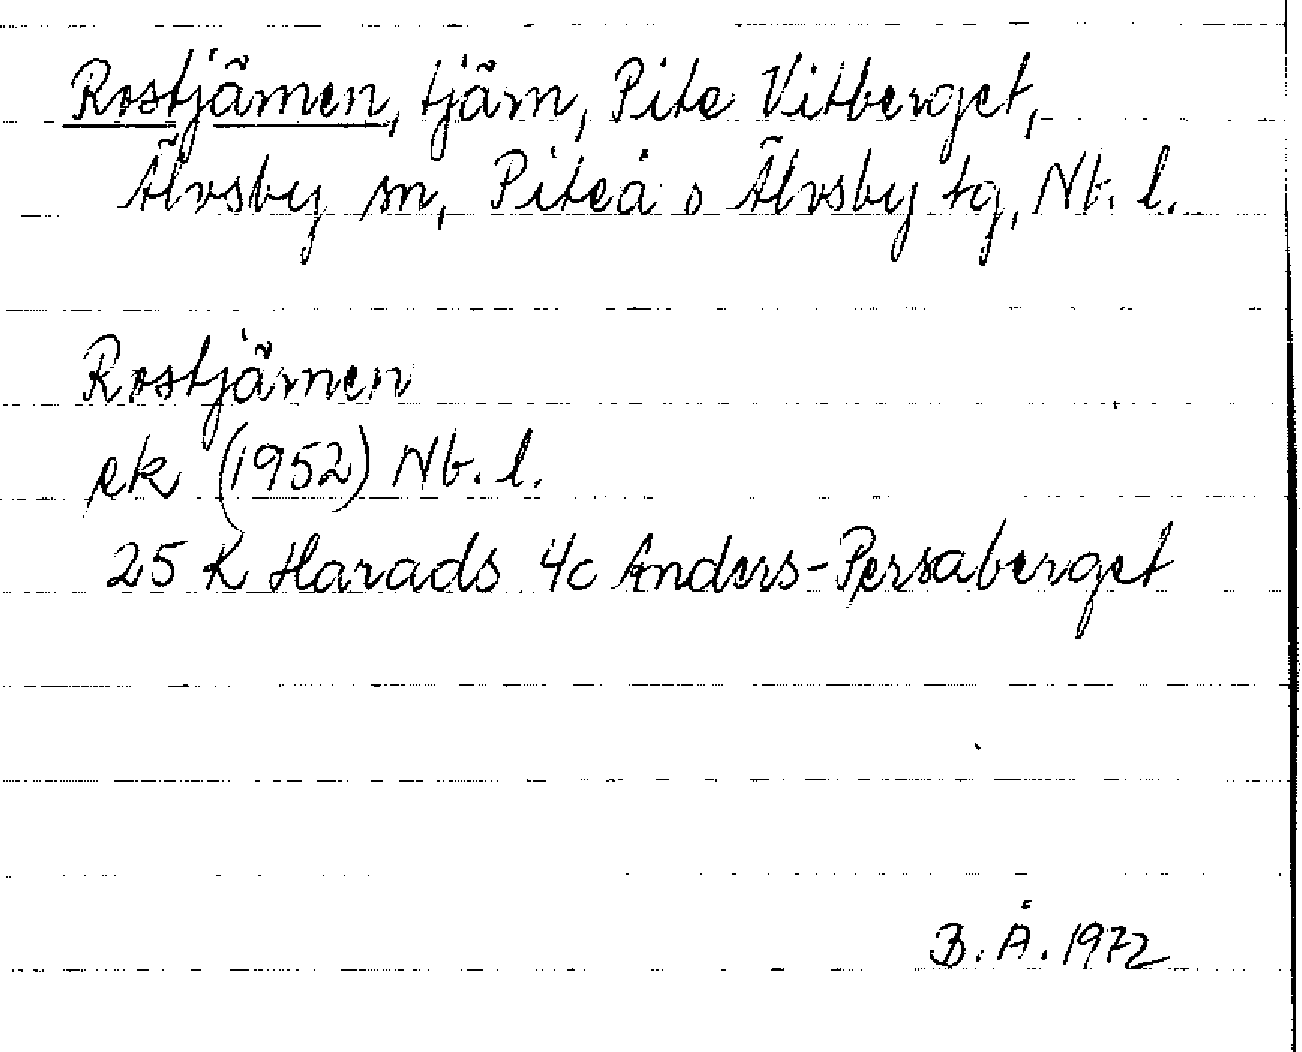 Rostjärnen, tjärn, Pite Vitberget,
Älvsby sn, Piteå o Älvsby tg, Nb. l.
Rostjärnen
ek (1952) Nb. l.
25 K Harads 4c Anders-Persaberget
B. Å. 1972